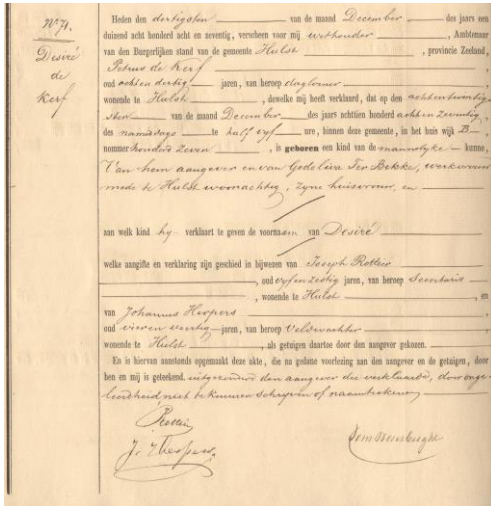 No 71.
Desiré
de
Kerf
Heden den dertigsten van de maand December des jaars een
duizend acht honderd acht en zeventig, verscheen voor mij wethouder, Ambtenaar
van den Burgerlijken stand van de gemeente Hulst, provincie Zeeland,
Petrus de Kerf
oud achten dertig jaren, van beroep daglooner
wonende te Hulst, dewelke mij heeft verklaard, dat op den achtentwintig
sten van de maand December des jaars achttien honderd achten zeventig,
des namiddags te half vyf ure, binnen deze gemeente, in het huis wijk B
nommer honderd zeven, is geboren een kind van de mannelyke kunne,
Van hem aangever en van Godelieve Ter Bekke, werkvrouw
mede te Hulst woonachtig, zyne huisvrouw, en
aan welk kind hy verklaart te geven de voornaam van Desiré
welke aangifte en verklaring zijn geschied in bijwezen van Joseph Rottier
, oud vyfenzestig jaren, van beroep Secretaris
, wonende te Hulst, en
van Johannus Herpers
oud vieren veertig jaren, van beroep Veldwachter
wonende te Hulst, als getuigen daartoe door den aangever gekozen.
En is hiervan aanstonds opgemaakt deze akte, die na gedane voorlezing aan den aangever en de getuigen, door
hen en mij is geteekend, uitgezonderd den aangever die verklaarde, door onge-
leerdheid, niet te kunnen schryven of naamteekenen
Rottier
J. Herpers